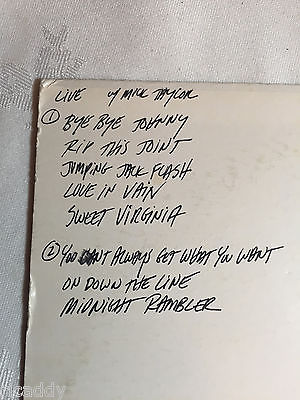 LIVE w/ MICK TAYLOR
① BYE BYE JOHNNY
RIP THIS JOINT
JUMPING JACK FLASH
LOVE IN VAIN
SWEET VIRGINIA
② YOU CANT ALWAYS GET WHAT YOU WANT
ON DOWN THE LINE
MIDNIGHT RAMBLER
ricaddy